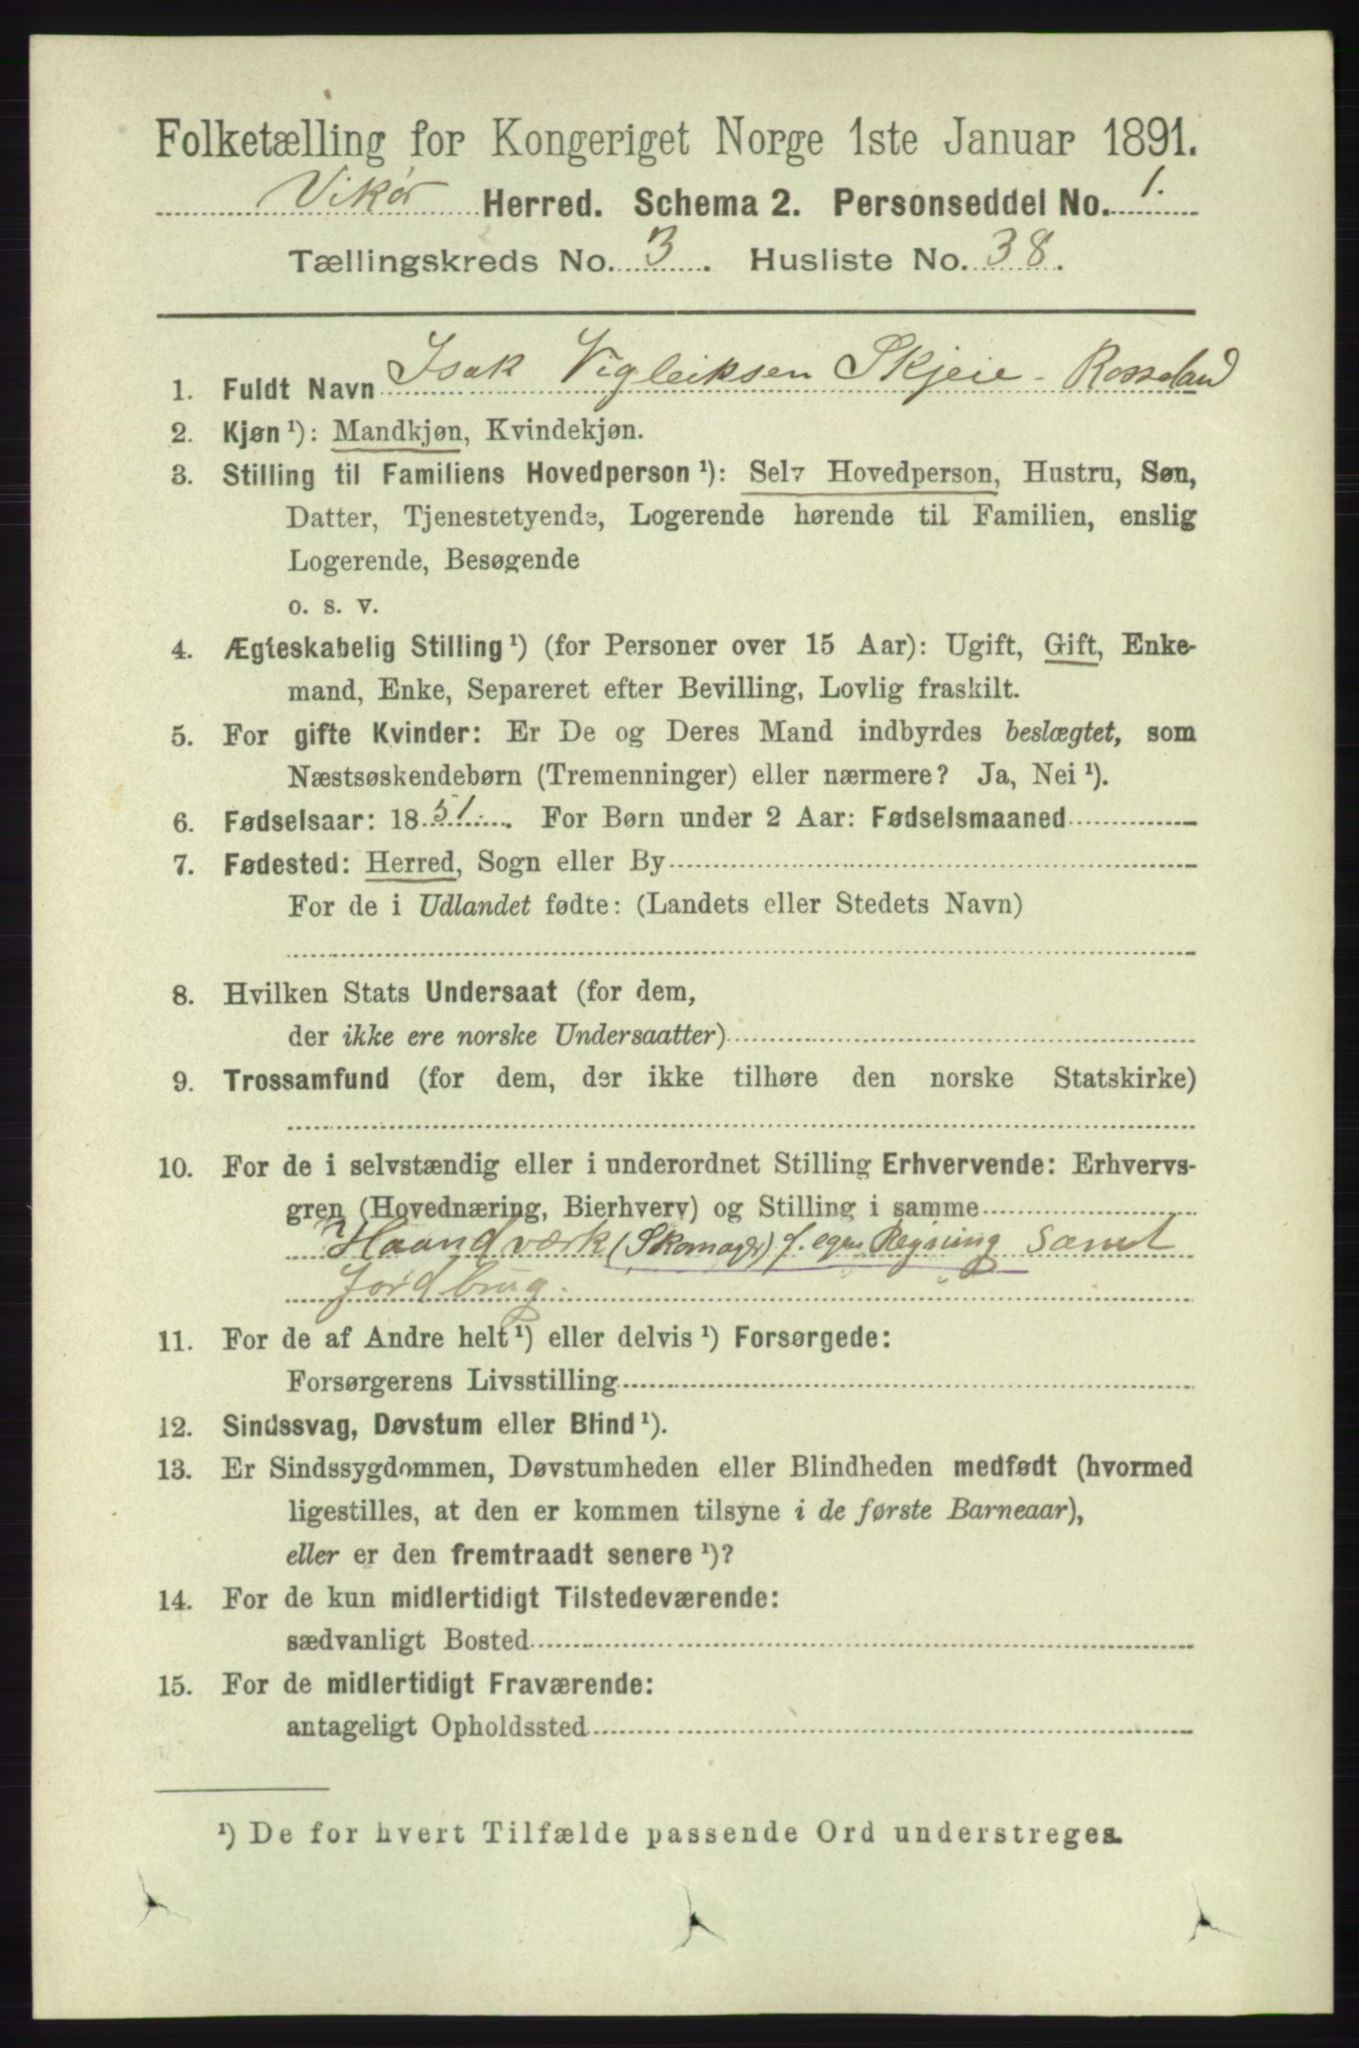 Folketælling for Kongeriget Norge 1ste Januar 1891.
Vikør Herred. Schema 2. Personseddel No. 1.
Tællingskreds No. 3. Husliste No. 38.
1. Fuldt Navn Isak Vigleiksen Skjeie - Rosseland
2. Kjøn ¹): Mandkjøn, Kvindekjøn.
3. Stilling til Familiens Hovedperson ¹): Selv Hovedperson, Hustru, Søn,
Datter, Tjenestetyende, Logerende hørende til Familien, enslig
Logerende, Besøgende
o. s. v.
4. Ægteskabelig Stilling ¹) (for Personer over 15 Aar): Ugift, Gift, Enke-
mand, Enke, Separeret efter Bevilling, Lovlig fraskilt.
5. For gifte Kvinder: Er De og Deres Mand indbyrdes beslægtet, som
Næstsøskendebørn (Tremenninger) eller nærmere? Ja, Nei ¹).
6. Fødselsaar: 1851. For Børn under 2 Aar: Fødselsmaaned
7. Fødested: Herred, Sogn eller By
For de i Udlandet fødte: (Landets eller Stedets Navn)
8. Hvilken Stats Undersaat (for dem,
der ikke ere norske Undersaatter)
9. Trossamfund (for dem, der ikke tilhøre den norske Statskirke)
10. For de i selvstændig eller i underordnet Stilling Erhvervende: Erhvervs-
gren (Hovednæring, Bierhverv) og Stilling i samme
Haandværk (Skomager) f. egen Regning samt
Jordbrug.
11. For de af Andre helt ¹) eller delvis ¹) Forsørgede:
Forsørgerens Livsstilling
12. Sindssvag, Døvstum eller Blind ¹).
13. Er Sindssygdommen, Døvstumheden eller Blindheden medfødt (hvormed
ligestilles, at den er kommen tilsyne i de første Barneaar),
eller er den fremtraadt senere ¹)?
14. For de kun midlertidigt Tilstedeværende:
sædvanligt Bosted
15. For de midlertidigt Fraværende:
antageligt Opholdssted
¹) De for hvert Tilfælde passende Ord understreges.